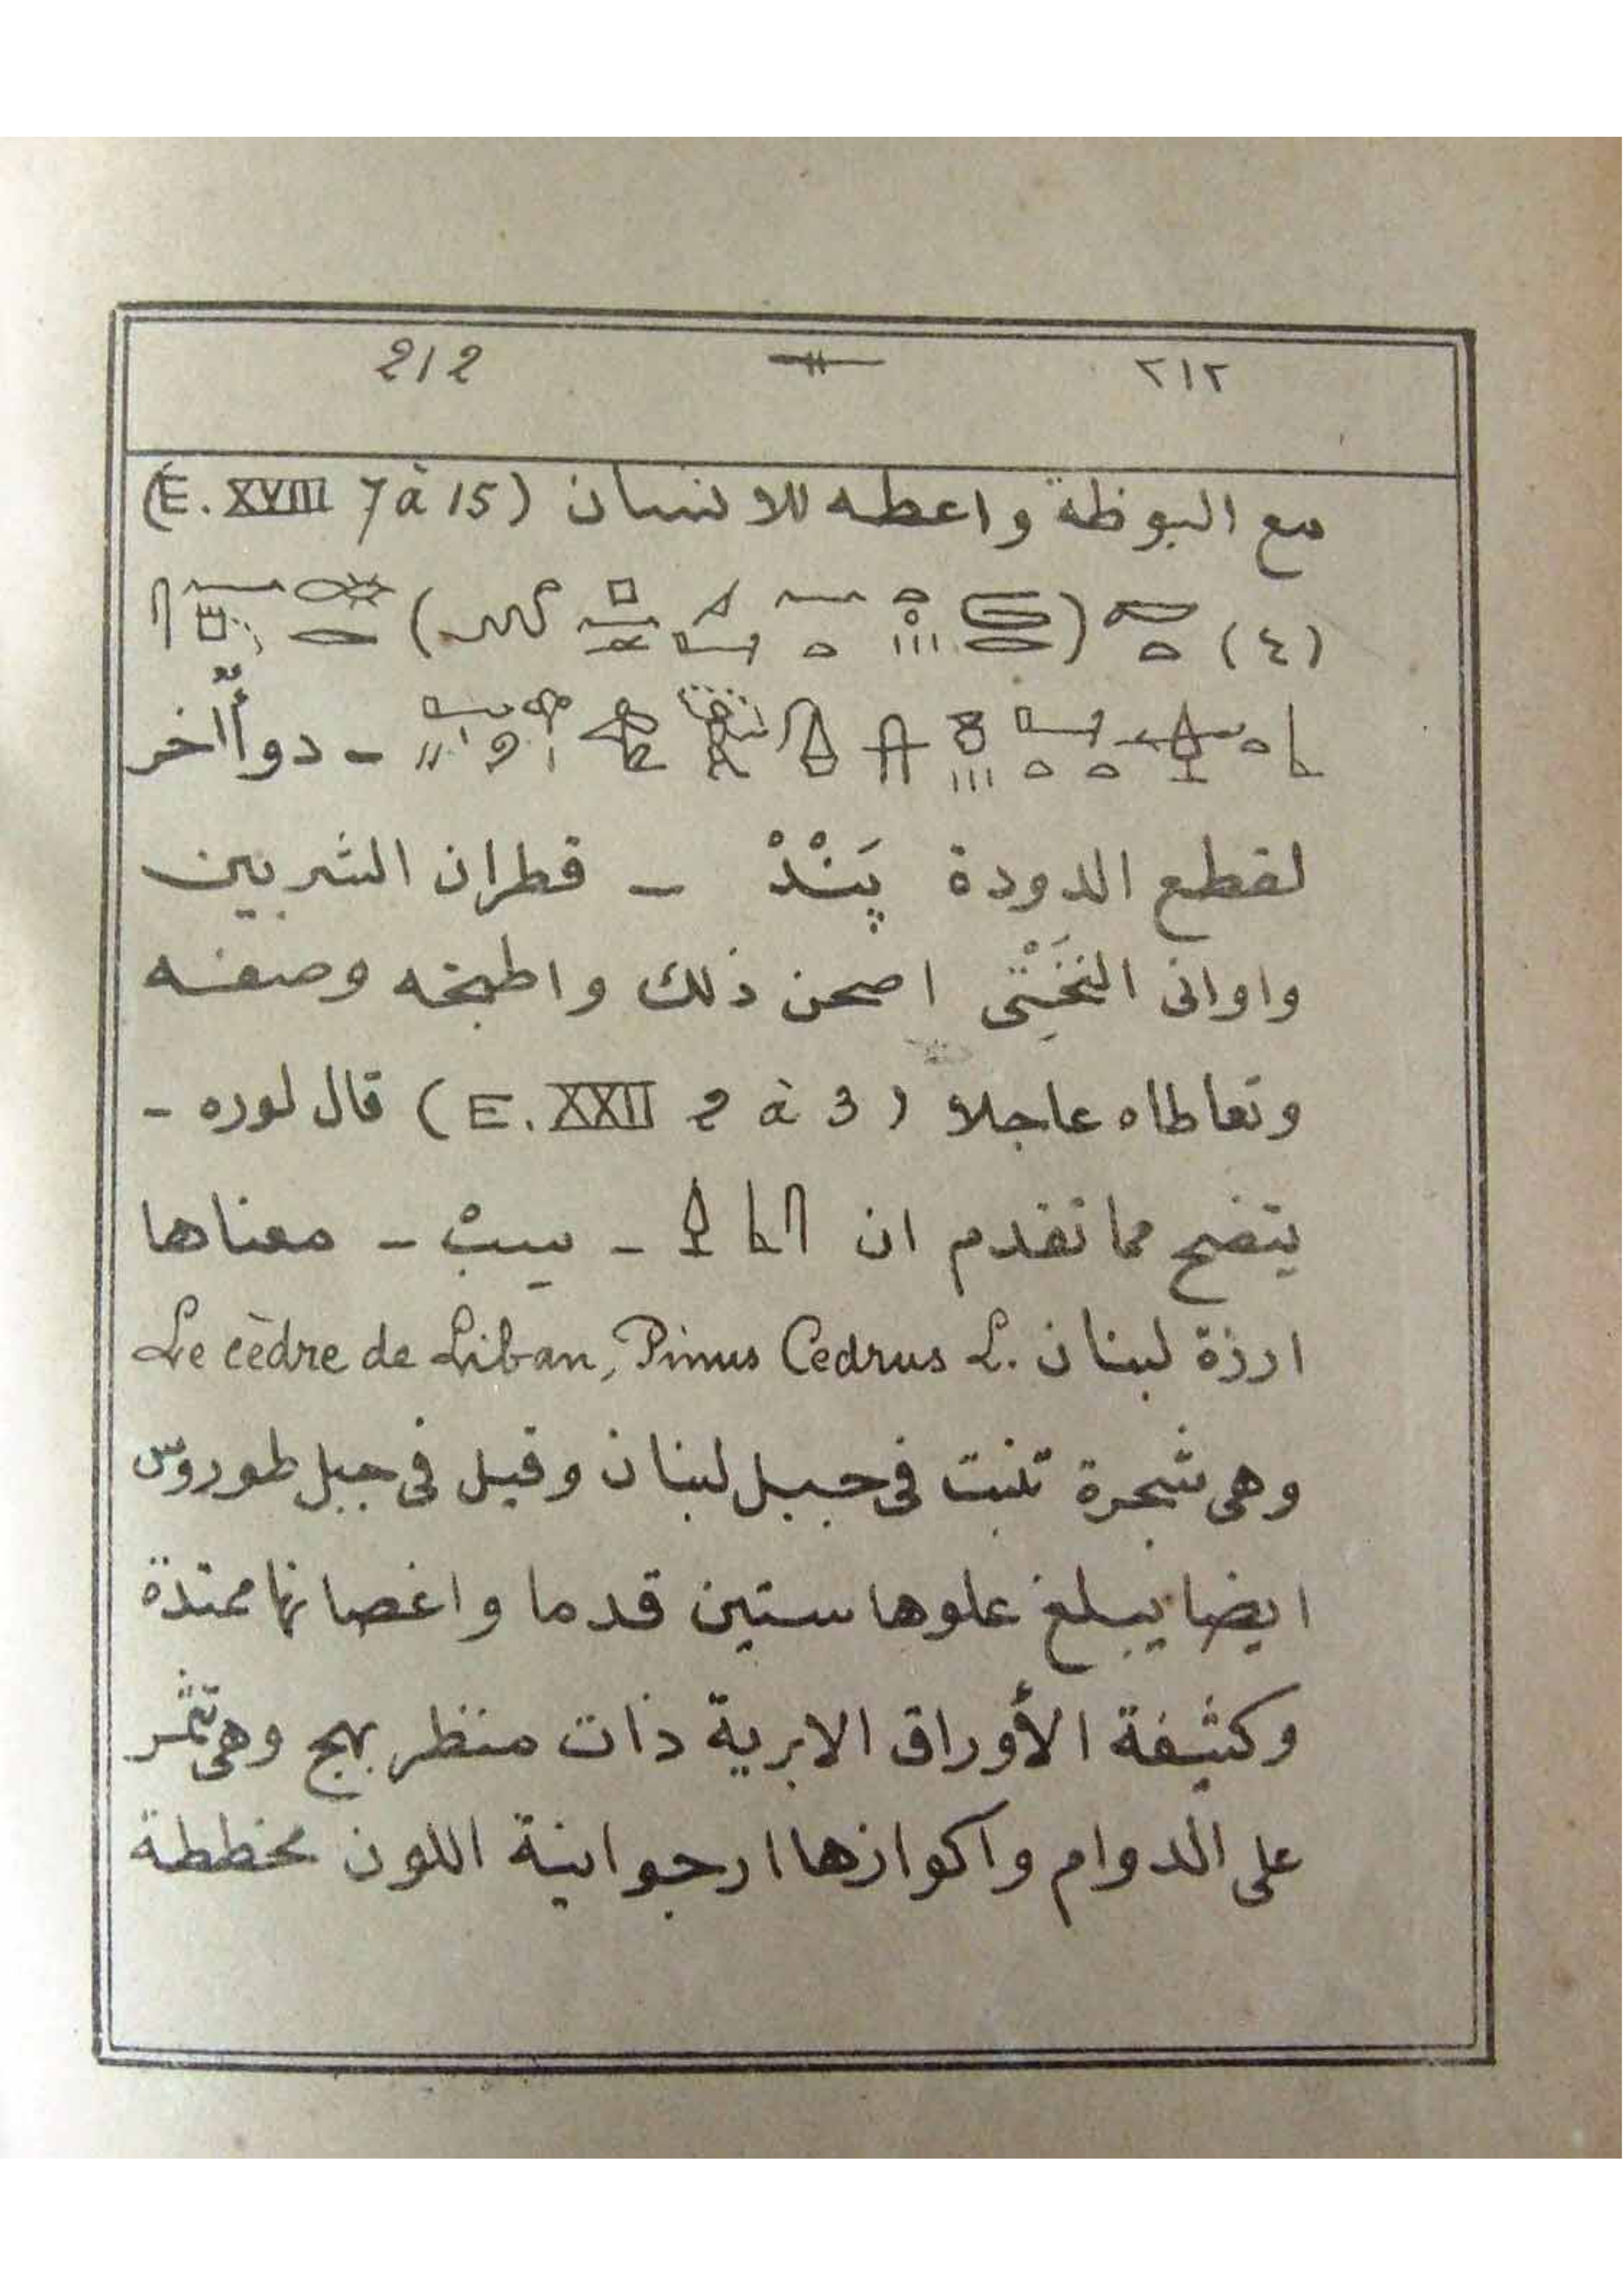 212 ٢١٢
مع البوظة واعطه للانسان (E. XVIII 7 à 15)
(٤)
ـ دوأ آخر
لقطع الدودة پَنْدْ ـ قطران الشربين
واوانى النَخَتِى اصحن ذلك واطبخه وصفه
وتعاطاه عاجلا (E. XXII 2 à 3) قال لوره ـ
يتضح مما تقدم ان ـ سِبْ ـ معناها
ارزة لبنان Le cèdre de Liban, Pinus Cedrus L.
وهى شجرة تنبت فى جبل لبنان وقيل فى جبل طوروس
ايضا يبلغ علوها ستين قدما واغصانها ممتدة
وكثيفة الأوراق الابرية ذات منظر بهج وهى تثمر
على الدوام واكوازها ارجوانية اللون مخططة